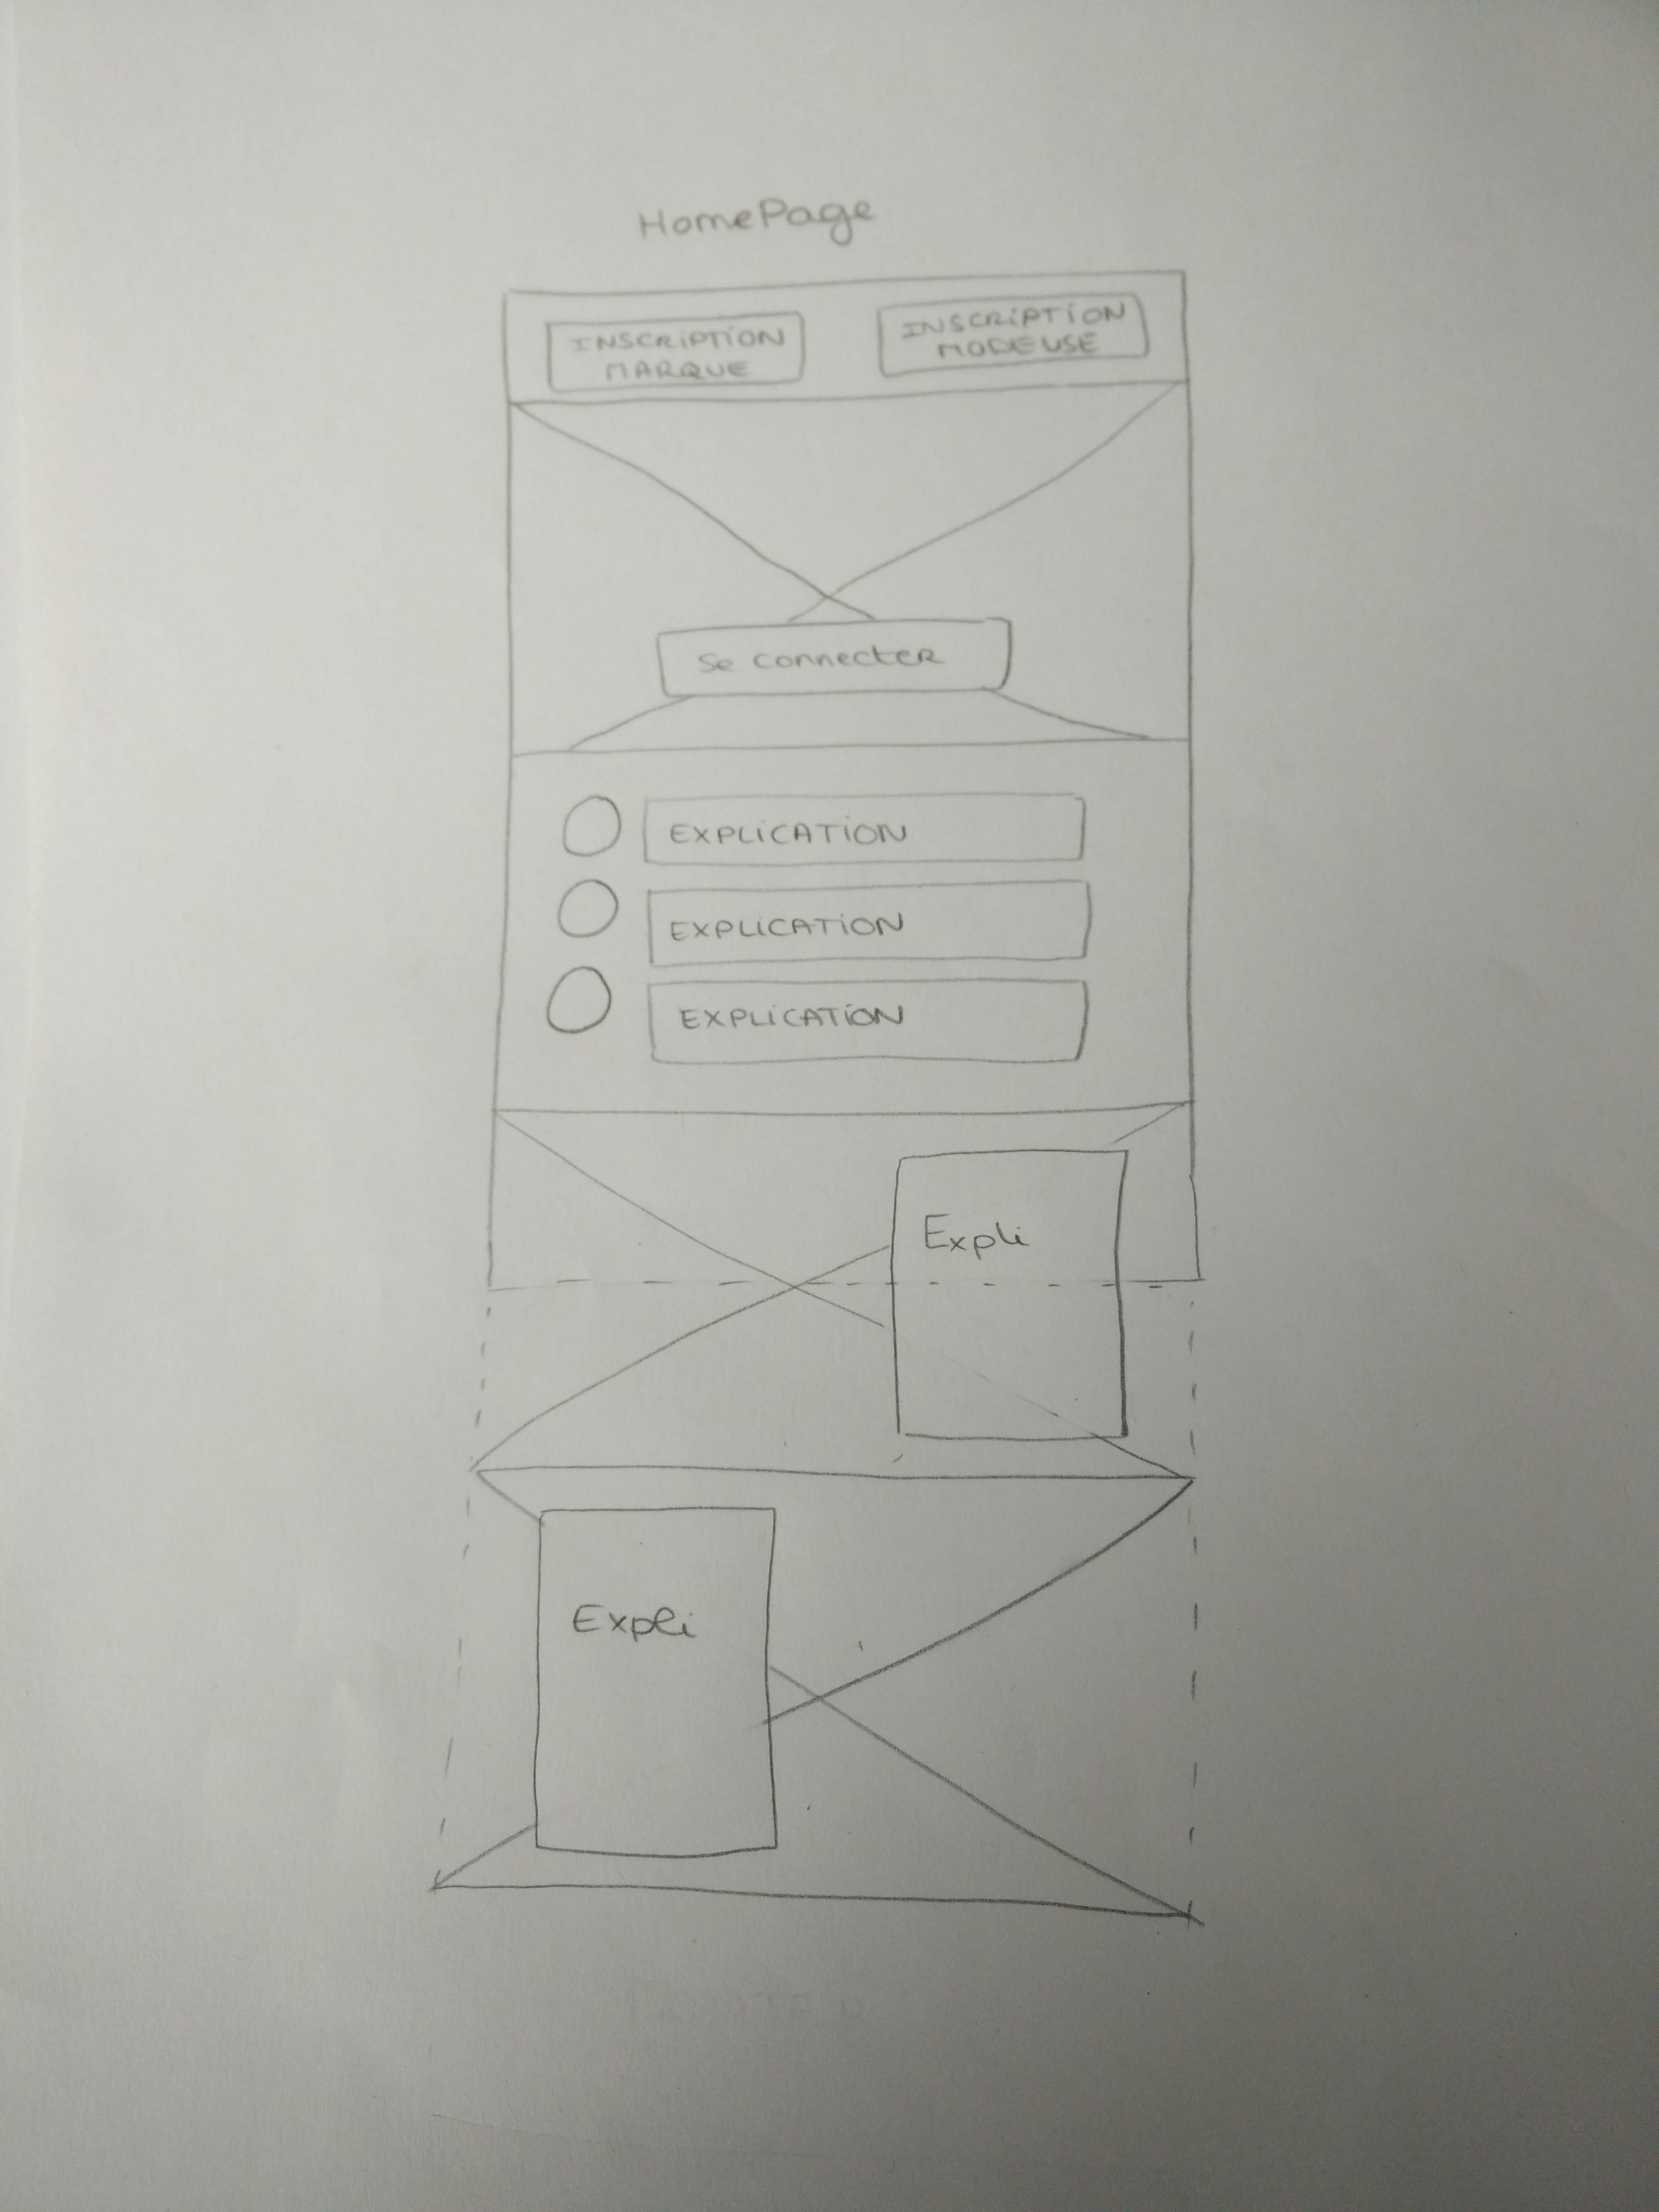 HomePage
INSCRIPTION
MARQUE
INSCRIPTION
MODEUSE
Se connecter
EXPLICATION
EXPLICATION
EXPLICATION
Expli
Expli